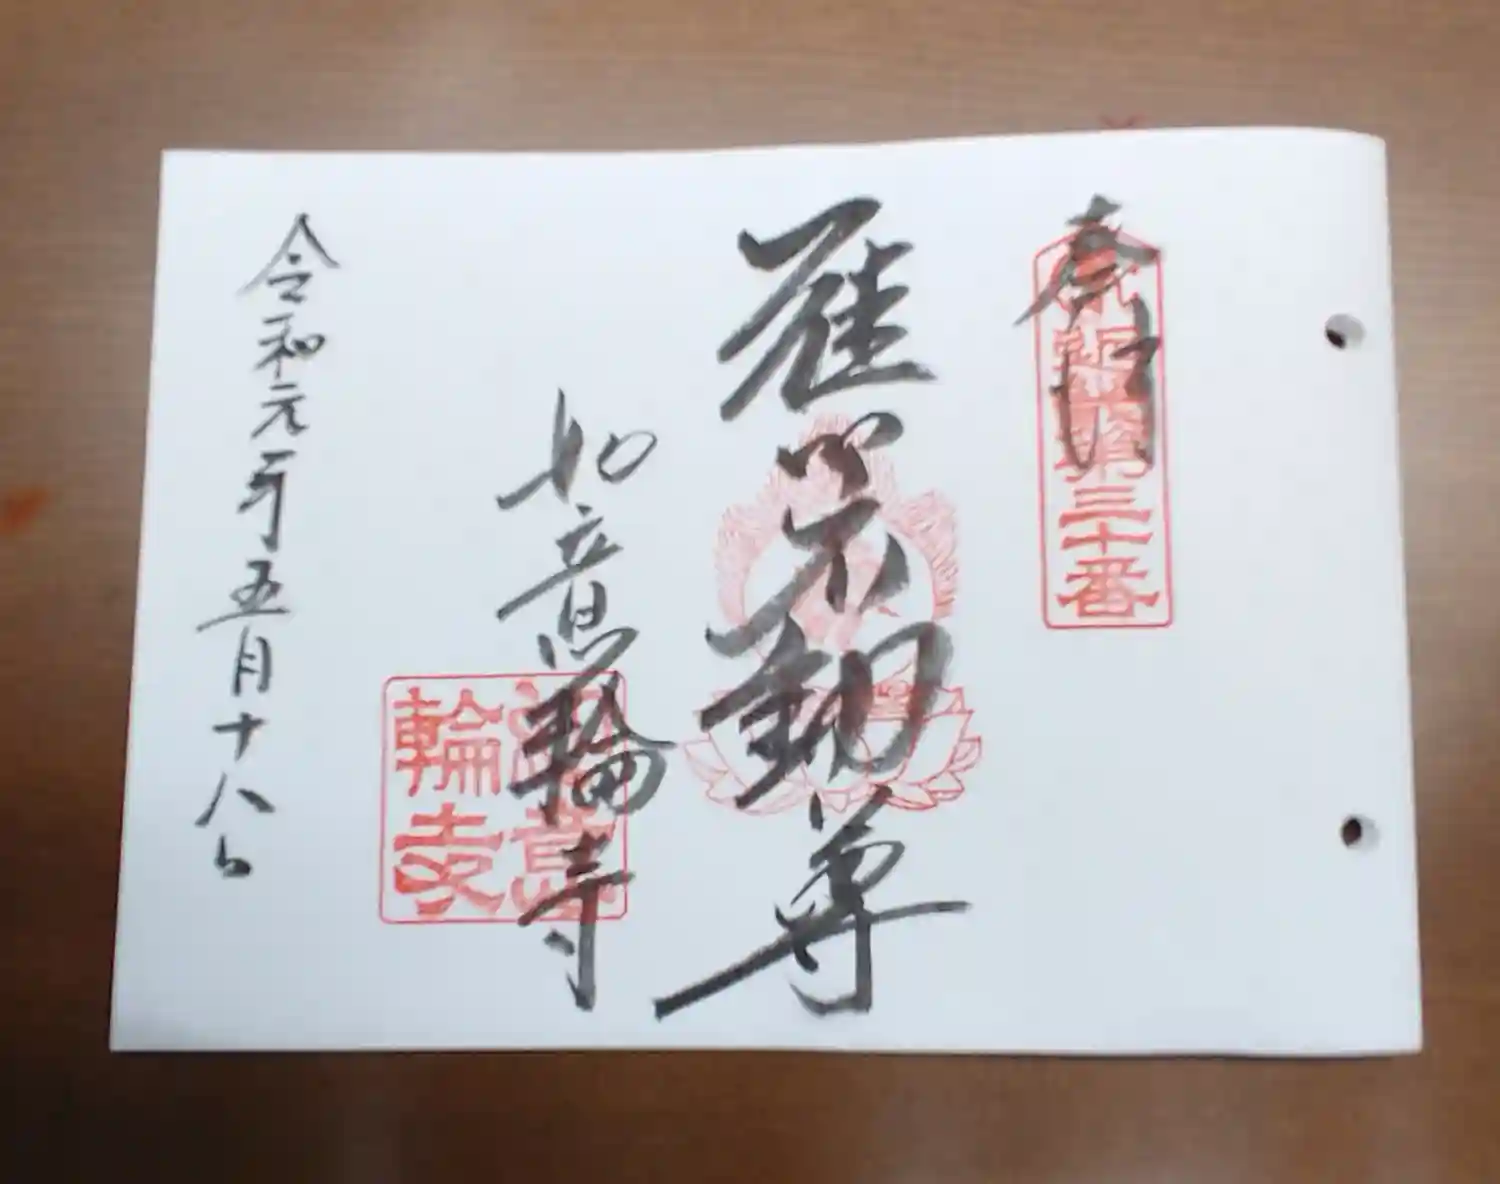 奉拝
第三十番
不動尊
如意輪寺
如意輪寺
令和元年五月十八日